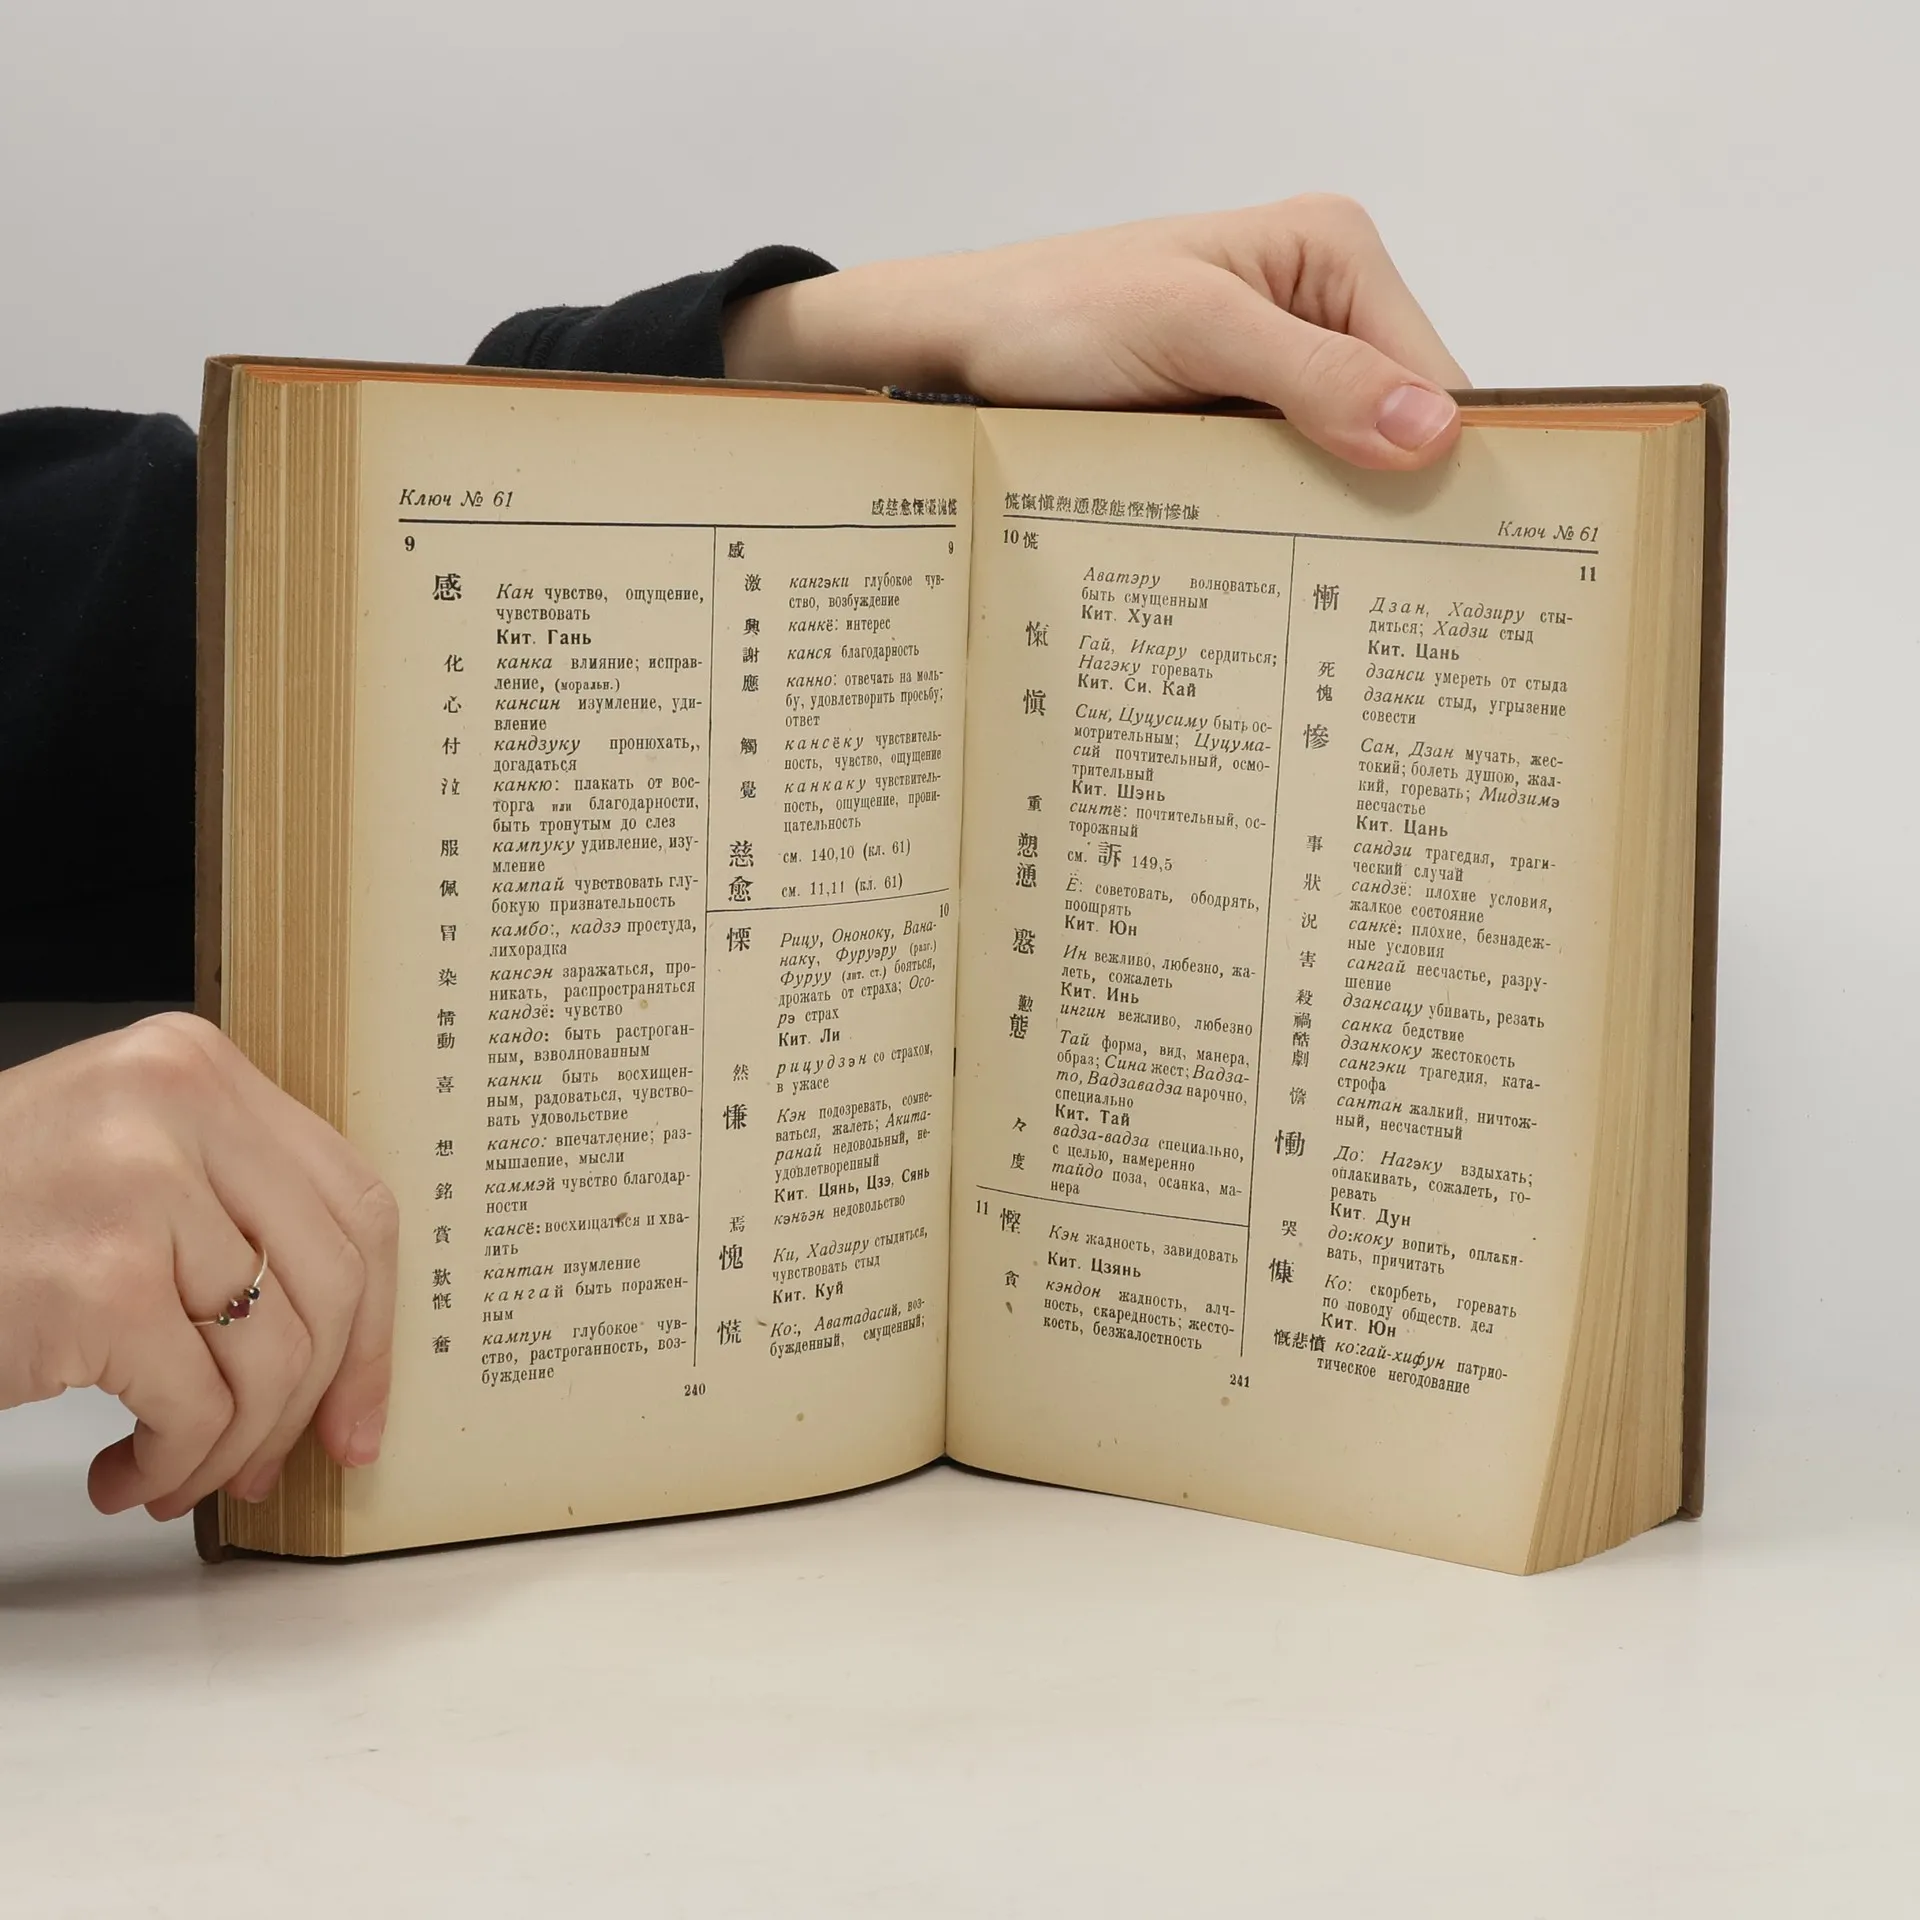 Ключ № 61
感慈愈慄慊愧慌
9
感 Кан чувство, ощущение,
чувствовать
Кит. Гань
化 канка влияние; исправ-
ление, (моральн.)
心 кансин изумление, уди-
вление
付 кандзуку пронюхать,,
догадаться
泣 канкю: плакать от вос-
торга или благодарности,
быть тронутым до слез
服 кампуку удивление, изу-
мление
佩 кампай чувствовать глу-
бокую признательность
冒 камбо:, кадзэ простуда,
лихорадка
染 кансэн заражаться, про-
никать, распространяться
情 кандзё: чувство
動 кандо: быть растроган-
ным, взволнованным
喜 канки быть восхищен-
ным, радоваться, чувство-
вать удовольствие
想 кансо: впечатление; раз-
мышление, мысли
銘 каммэй чувство благодар-
ности
賞 кансё: восхищаться и хва-
лить
歎 кантан изумление
慨 кангай быть поражен-
ным
奮 кампун глубокое чув-
ство, растроганность, воз-
буждение
感 9
激 кангэки глубокое чув-
ство, возбуждение
興 канкё: интерес
謝 канся благодарность
應 канно: отвечать на моль-
бу, удовлетворить просьбу;
ответ
觸 кансёку чувствитель-
ность, чувство, ощущение
覺 канкаку чувствитель-
ность, ощущение, прони-
цательность
慈 см. 140,10 (кл. 61)
愈 см. 11,11 (кл. 61)
10
慄 Рицу, Ононоку, Вана-
наку, Фуруэру (разг.)
Фуруу (лит. ст.) бояться,
дрожать от страха; Осо-
рэ страх
Кит. Ли
然 рицудзэн со страхом,
в ужасе
慊 Кэн подозревать, сомне-
ваться, жалеть; Акита-
ранай недовольный, не-
удовлетворенный
Кит. Цянь, Цзэ, Сянь
焉 кэнъэн недовольство
愧 Ки, Хадзиру стыдиться,
чувствовать стыд
Кит. Куй
慌 Ко:, Аватадасий, воз-
бужденный, смущенный;
240
慌愾愼愬慂慇態慳慚慘慷
Ключ № 61
10 慌
Аватэру волноваться,
быть смущенным
Кит. Хуан
愾 Гай, Икару сердиться;
Нагэку горевать
Кит. Си, Кай
愼 Син, Цуцусиму быть ос-
мотрительным; Цуцума-
сий почтительный, осмо-
трительный
Кит. Шэнь
重 синтё: почтительный, ос-
торожный
愬 см. 訴 149,5
慂 Ё: советовать, ободрять,
поощрять
Кит. Юн
慇 Ин вежливо, любезно, жа-
леть, сожалеть
Кит. Инь
懃 ингин вежливо, любезно
態 Тай форма, вид, манера,
образ; Сина жест; Вадза-
то, Вадзавадза нарочно,
специально
Кит. Тай
々 вадза-вадза специально,
с целью, намеренно
度 тайдо поза, осанка, ма-
нера
11 慳 Кэн жадность, завидовать
Кит. Цзянь
貪 кэндон жадность, алч-
ность, скаредность; жесто-
кость, безжалостность
11
慚 Дзан, Хадзиру сты-
диться; Хадзи стыд
Кит. Цань
死 дзанси умереть от стыда
愧 дзанки стыд, угрызение
совести
慘 Сан, Дзан мучать, жес-
токий; болеть душою, жал-
кий, горевать; Мидзимэ
несчастье
Кит. Цань
事 сандзи трагедия, траги-
ческий случай
狀 сандзё: плохие условия,
жалкое состояние
況 санкё: плохие, безнадеж-
ные условия
害 сангай несчастье, разру-
шение
殺 дзансацу убивать, резать
禍 санка бедствие
酷 дзанкоку жестокость
劇 сангэки трагедия, ката-
строфа
憺 сантан жалкий, ничтож-
ный, несчастный
慟 До: Нагэку вздыхать;
оплакивать, сожалеть, го-
ревать
Кит. Дун
哭 до:коку вопить, оплаки-
вать, причитать
慷 Ко: скорбеть, горевать
по поводу обществ. дел
Кит. Юн
慨悲憤 ко:гай-хифун патрио-
тическое негодование
241